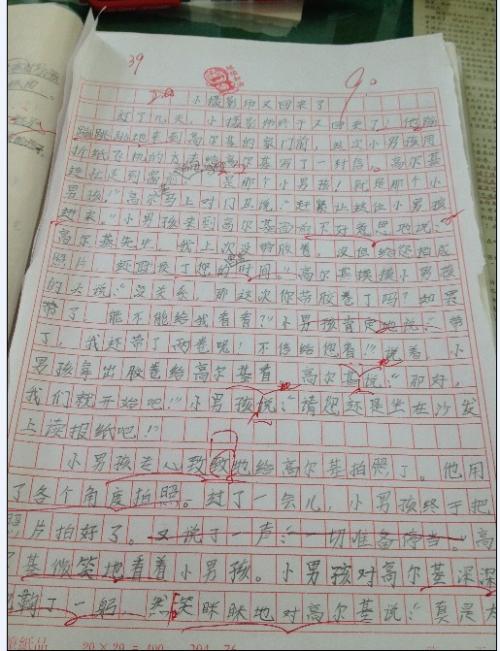 39
90
小摄影师又回来了
过了几天，小摄影师终于又回来了！他蹦
蹦跳跳地来到高尔基的家门前，这次小男孩用
折纸飞机的方式给高尔基写了一封信。高尔基
赶忙走到窗前，是那个小男孩！就是那个小
男孩，"高尔基马上对门卫说："赶紧让这位小男孩
进来。"小男孩来到高尔基面前不好意思地说：
高尔基先生，我上次没带胶卷，没但给您拍成
照片，还耽误了您的时间。"高尔基摸摸小男孩
的头说："没关系，那这次你带胶卷了吗？如果
带了，能不能给我看看？"小男孩肯定地说：带
了，我还带了两卷呢！不信给您看！"说着，小
男孩拿出胶卷给高尔基看，高尔基说："那好，
我们就开始吧！"小男孩说："请您还是坐在沙发
上读报纸吧！"
小男孩专心致致地给高尔基拍照了。他用
了各个角度拍照。过了一会儿，小男孩终于把
照片拍好了。又说了一声："一切准备停当。高
基微笑地看着小男孩。小男孩对高尔基深深
鞠了一躬，然笑眯眯地对高尔基说："真是
20×20=400